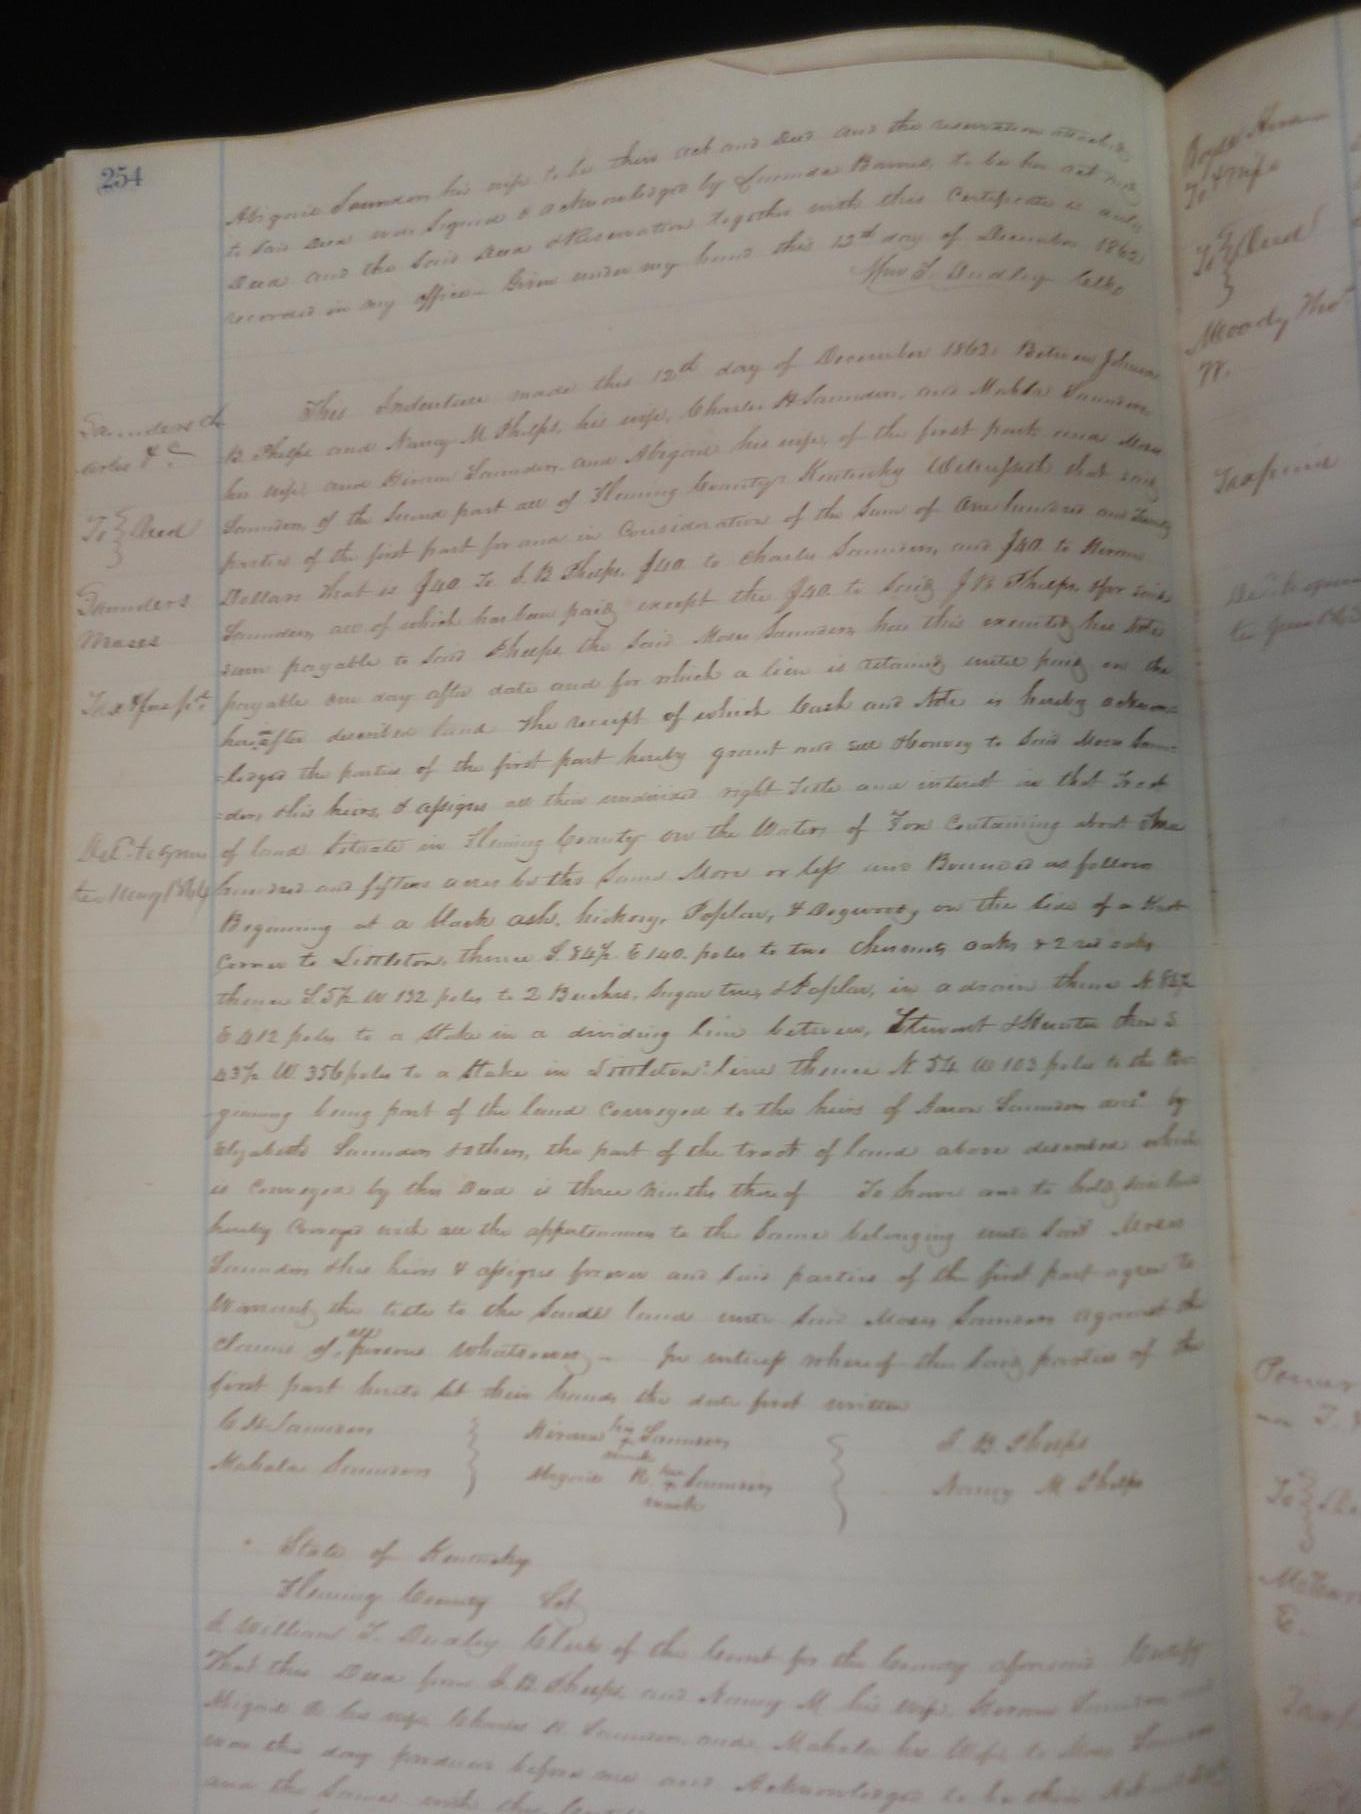 254
Abigail Saunders his wife to be their act and deed and the reservation attached
to said Deed was signed & acknowledged by Lucinda Barnes, to be her act and
Deed and the said Deed & Reservation together with this Certificate is duly
recorded in my office. Given under my hand this 12th day of December 1862
Wm T. Dudley Clk
Saunders Ch
arles &c
To } Deed
Saunders
Moses
Tax & fee pd
Deld to Gran
tee May 1864
This Indenture made this 12th day of December 1862 Between Johnson
B. Phelps and Nancy M Phelps, his wife, Charles H Saunders, and Mahala Saunders
his wife and Hiram Saunders and Abigail his wife, of the first part and Moses
Saunders, of the second part all of Fleming County Kentucky Witnesseth that said
parties of the first part for and in Consideration of the Sum of One hundred and Twenty
Dollars that is $40 To J. B Phelps, $40 to Charles Saunders, and $40 to Hiram
Saunders, all of which has been paid except the $40 to said J B Phelps, & for said
sum payable to said Phelps the said Moses Saunders has this executed his note
payable one day after date and for which a lien is retained until paid on the
hereafter described land The receipt of which Cash and Note is hereby acknow=
=ledged the parties of the first part hereby grant and sell & Convey to said Moses Saun=
=ders & his heirs, & assigns all their undivided right Title and interest in that Tract
of land Situate in Fleming County on the Waters of Fox Containing about One
hundred and fifteen acres be the Same More or less and Bounded as follows
Beginning at a black ash, hickory, Poplar, & Dogwood, on the side of a
Corner to Littleton, thence S. 84½ E 140. poles to two Chesnut, oaks & 2 red oaks
thence S. 5½ W 132 poles to 2 Beeches, Sugar tree, & Poplar, in a drain thence N 82½
E 412 poles to a Stake in a dividing line between, Stewart & Hunter then S
43½ W. 356 poles to a Stake in Littletons line thence N 54 W 103 poles to the Be-
ginning being part of the land Conveyed to the heirs of Aaron Saunders decd by
Elizabeth Saunders & others, the part of the tract of land above described which
is Conveyed by this Deed is three Ninths thereof To have and to hold, said land
hereby Conveyed with all the appertenances to the Same belonging unto Said Moses
Saunders & his heirs & assigns forever and said parties of the first part agree to
Warrant, the title to the Said land unto Said Moses Saunders against the
claims of all persons whatsoever, - In witness whereof the said parties of the
first part hereto set their hands the date first written
C H Saunders } Hiram his x mark Saunders } J. B. Phelps
Mahala Saunders Abigail R. her x mark Saunders Nancy M Phelps
State of Kentucky
Fleming County Sct
I William T. Dudley Clerk of the Court for the County aforesaid Certify
That this Deed from J. B. Phelps and Nancy M his wife, Hiram Saunders and
Abigail R his wife, Charles H Saunders, and Mahala his Wife to Moses Saunders
was this day produced before me and Acknowledged to be their Act
and the Same with this
To & wife
To } Deed
Moody Thos
W.
To
E.